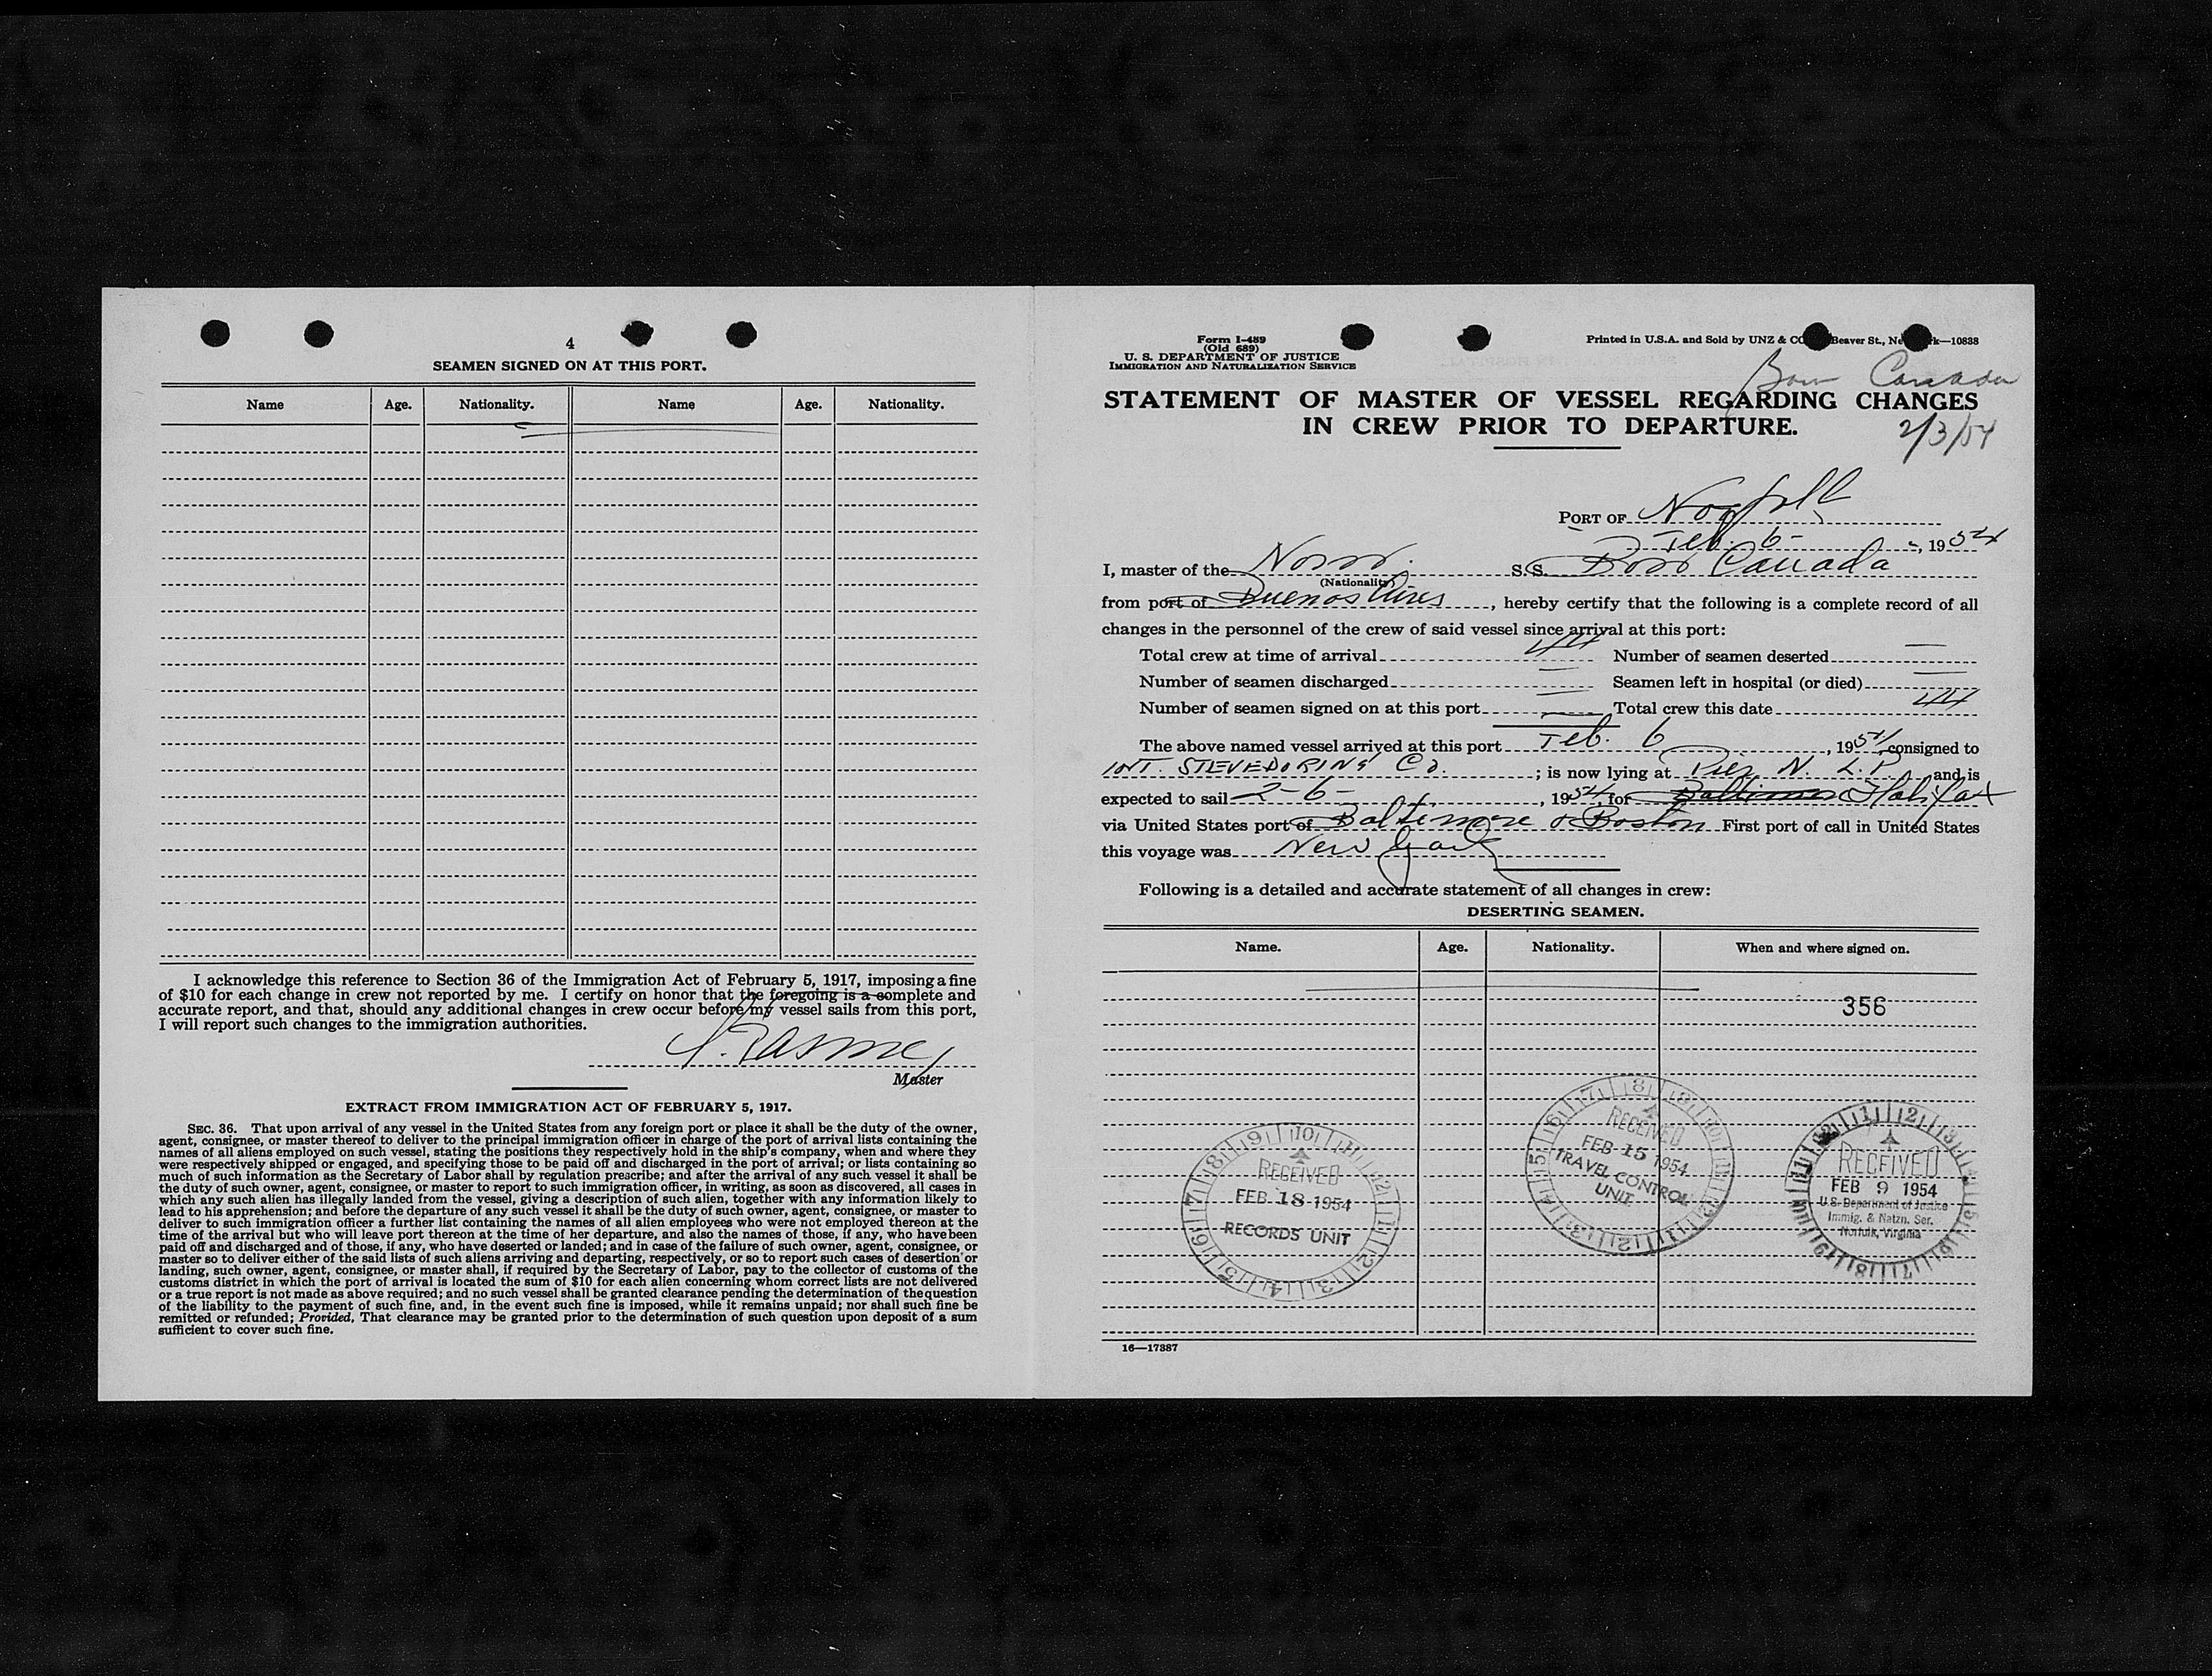 4
SEAMEN SIGNED ON AT THIS PORT.
Name Age. Nationality. Name Age. Nationality.
I acknowledge this reference to Section 36 of the Immigration Act of February 5, 1917, imposing a fine
of $10 for each change in crew not reported by me. I certify on honor that the foregoing is a complete and
accurate report, and that, should any additional changes in crew occur before my vessel sails from this port,
I will report such changes to the immigration authorities.
Master
EXTRACT FROM IMMIGRATION ACT OF FEBRUARY 5, 1917.
SEC. 36. That upon arrival of any vessel in the United States from any foreign port or place it shall be the duty of the owner,
agent, consignee, or master thereof to deliver to the principal immigration officer in charge of the port of arrival lists containing the
names of all aliens employed on such vessel, stating the positions they respectively hold in the ship's company, when and where they
were respectively shipped or engaged, and specifying those to be paid off and discharged in the port of arrival; or lists containing so
much of such information as the Secretary of Labor shall by regulation prescribe; and after the arrival of any such vessel it shall be
the duty of such owner, agent, consignee, or master to report to such immigration officer, in writing, as soon as discovered, all cases in
which any such alien has illegally landed from the vessel, giving a description of such alien, together with any information likely to
lead to his apprehension; and before the departure of any such vessel it shall be the duty of such owner, agent, consignee, or master to
deliver to such immigration officer a further list containing the names of all alien employees who were not employed thereon at the
time of the arrival but who will leave port thereon at the time of her departure, and also the names of those, if any, who have been
paid off and discharged and of those, if any, who have deserted or landed; and in case of the failure of such owner, agent, consignee, or
master so to deliver either of the said lists of such aliens arriving and departing, respectively, or so to report such cases of desertion or
landing, such owner, agent, consignee, or master shall, if required by the Secretary of Labor, pay to the collector of customs of the
customs district in which the port of arrival is located the sum of $10 for each alien concerning whom correct lists are not delivered
or a true report is not made as above required; and no such vessel shall be granted clearance pending the determination of the question
of the liability to the payment of such fine, and, in the event such fine is imposed, while it remains unpaid; nor shall such fine be
remitted or refunded; Provided, That clearance may be granted prior to the determination of such question upon deposit of a sum
sufficient to cover such fine.
Form I-489
(Old 689)
U. S. DEPARTMENT OF JUSTICE
IMMIGRATION AND NATURALIZATION SERVICE
Printed in U.S.A. and Sold by UNZ & CO Beaver St., Ne rk—10838
Canada
STATEMENT OF MASTER OF VESSEL REGARDING CHANGES
IN CREW PRIOR TO DEPARTURE.
2/3/54
PORT OF Norfolk
Feb. 6- , 1954
I, master of the Norw. S.S. Bow Canada
(Nationality)
from port of Buenos Aires, hereby certify that the following is a complete record of all
changes in the personnel of the crew of said vessel since arrival at this port:
Total crew at time of arrival 44 Number of seamen deserted —
Number of seamen discharged — Seamen left in hospital (or died) —
Number of seamen signed on at this port — Total crew this date 44
The above named vessel arrived at this port Feb. 6, 1954, consigned to
INT. STEVEDORING Co. ; is now lying at Pier N. L.P. and is
expected to sail 2-6-, 1954, for Baltimore Halifax
via United States port of Baltimore & Boston First port of call in United States
this voyage was New York
Following is a detailed and accurate statement of all changes in crew:
DESERTING SEAMEN.
Name. Age. Nationality. When and where signed on.
356
RECEIVED
FEB 18 1954
RECORDS UNIT
RECEIVED
FEB 15 1954
TRAVEL CONTROL
UNIT
RECEIVED
FEB 9 1954
U.S. Department of Justice
Immig. & Natzn. Ser.
Norfolk, Virginia
16—17387